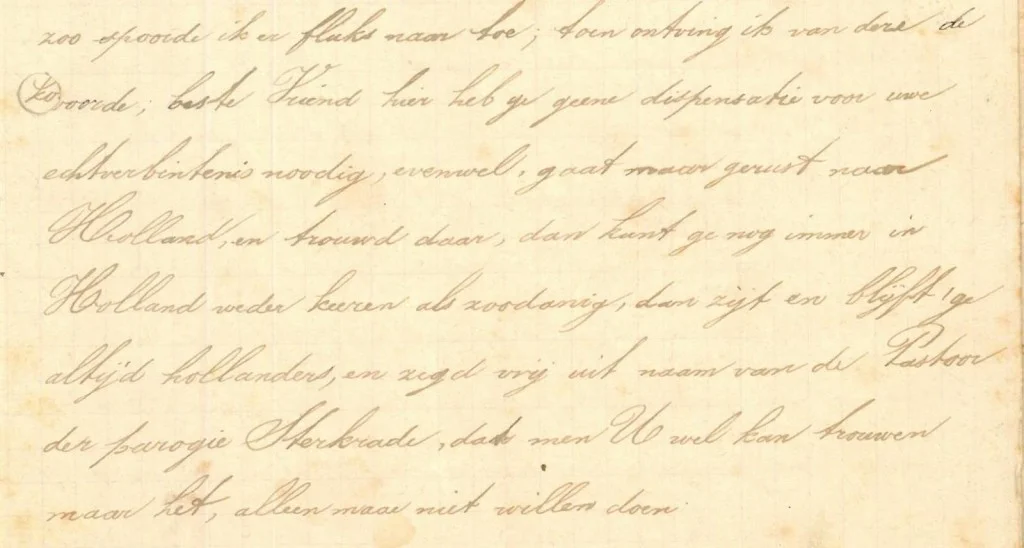 zoo spoorde ik er fluks naar toe; toen ontving ik van dese de
zo voorde; beste Vriend hier heb ge geene dispensatie voor uwe
echtverbintenis noodig, evenwel, gaat maar gerust naar
Holland, en trouwd daar, dan kunt ge nog immer in
Holland weder keeren als zoodanig, dan zijt en blijft, ge
altijd hollanders, en zegd vrij uit naam van de Pastoor
der parogie Sterkrade, dat men U wel kan trouwen
maar het, alleen maar niet willen doen